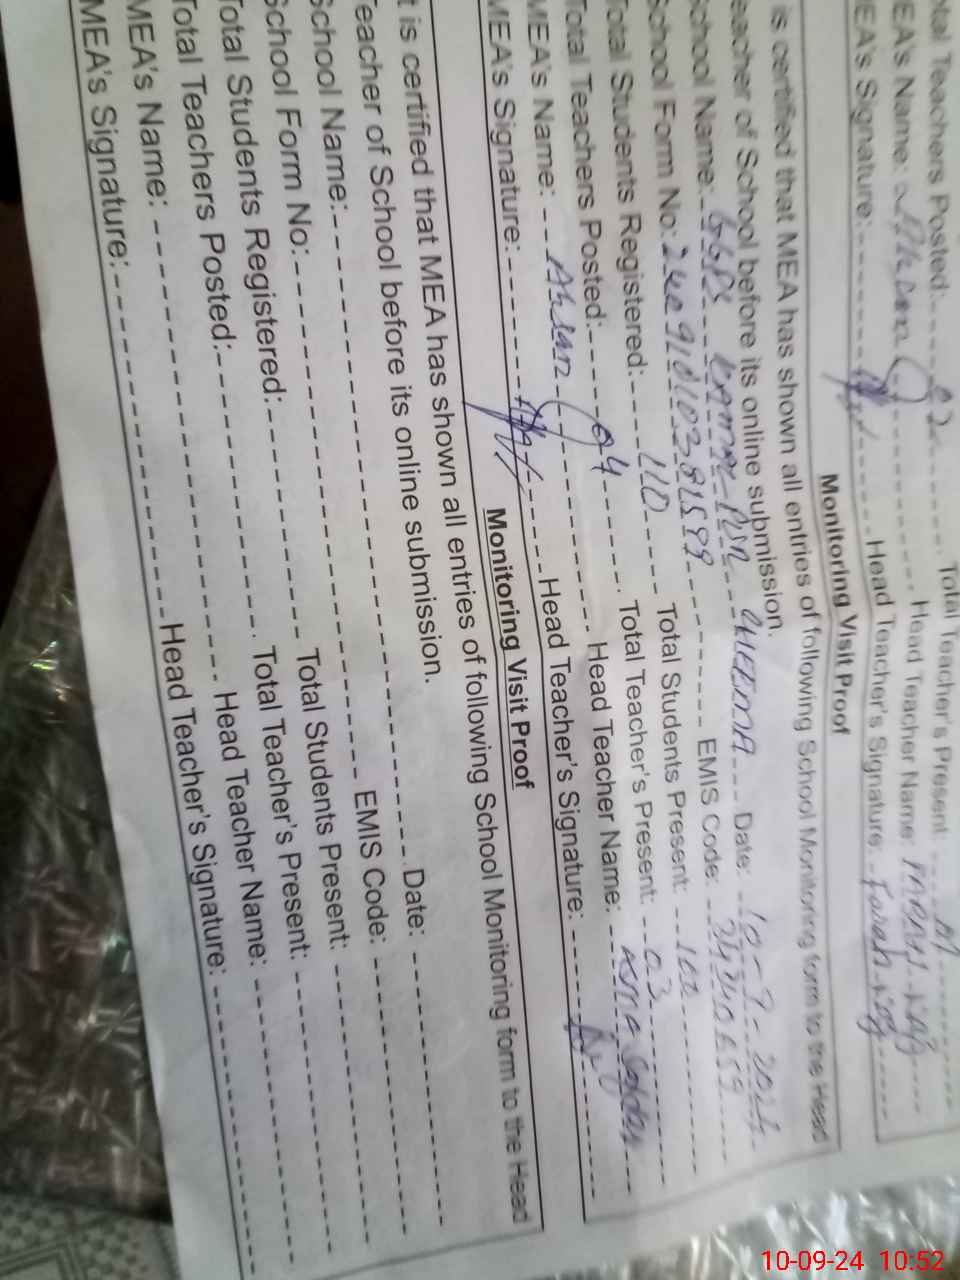 Total Teachers Posted: 02 Total Teacher's Present:
MEA's Name: Ahsan Head Teacher Name:
MEA's Signature: Head Teacher's Signature: Farah Naz
Monitoring Visit Proof
is certified that MEA has shown all entries of following School Monitoring form to the Head
eacher of School before its online submission.
School Name: GGPS CHEEMA Date: 10-9-2024
School Form No: EMIS Code:
Total Students Registered: 110 Total Students Present: 100
Total Teachers Posted: 04 Total Teacher's Present: 03
MEA's Name: Ahsan Head Teacher Name: Asma
MEA's Signature: Head Teacher's Signature:
Monitoring Visit Proof
t is certified that MEA has shown all entries of following School Monitoring form to the Head
Teacher of School before its online submission.
School Name: Date:
School Form No: EMIS Code:
Total Students Registered: Total Students Present:
Total Teachers Posted: Total Teacher's Present:
MEA's Name: Head Teacher Name:
MEA's Signature: Head Teacher's Signature:
10-09-24 10:52